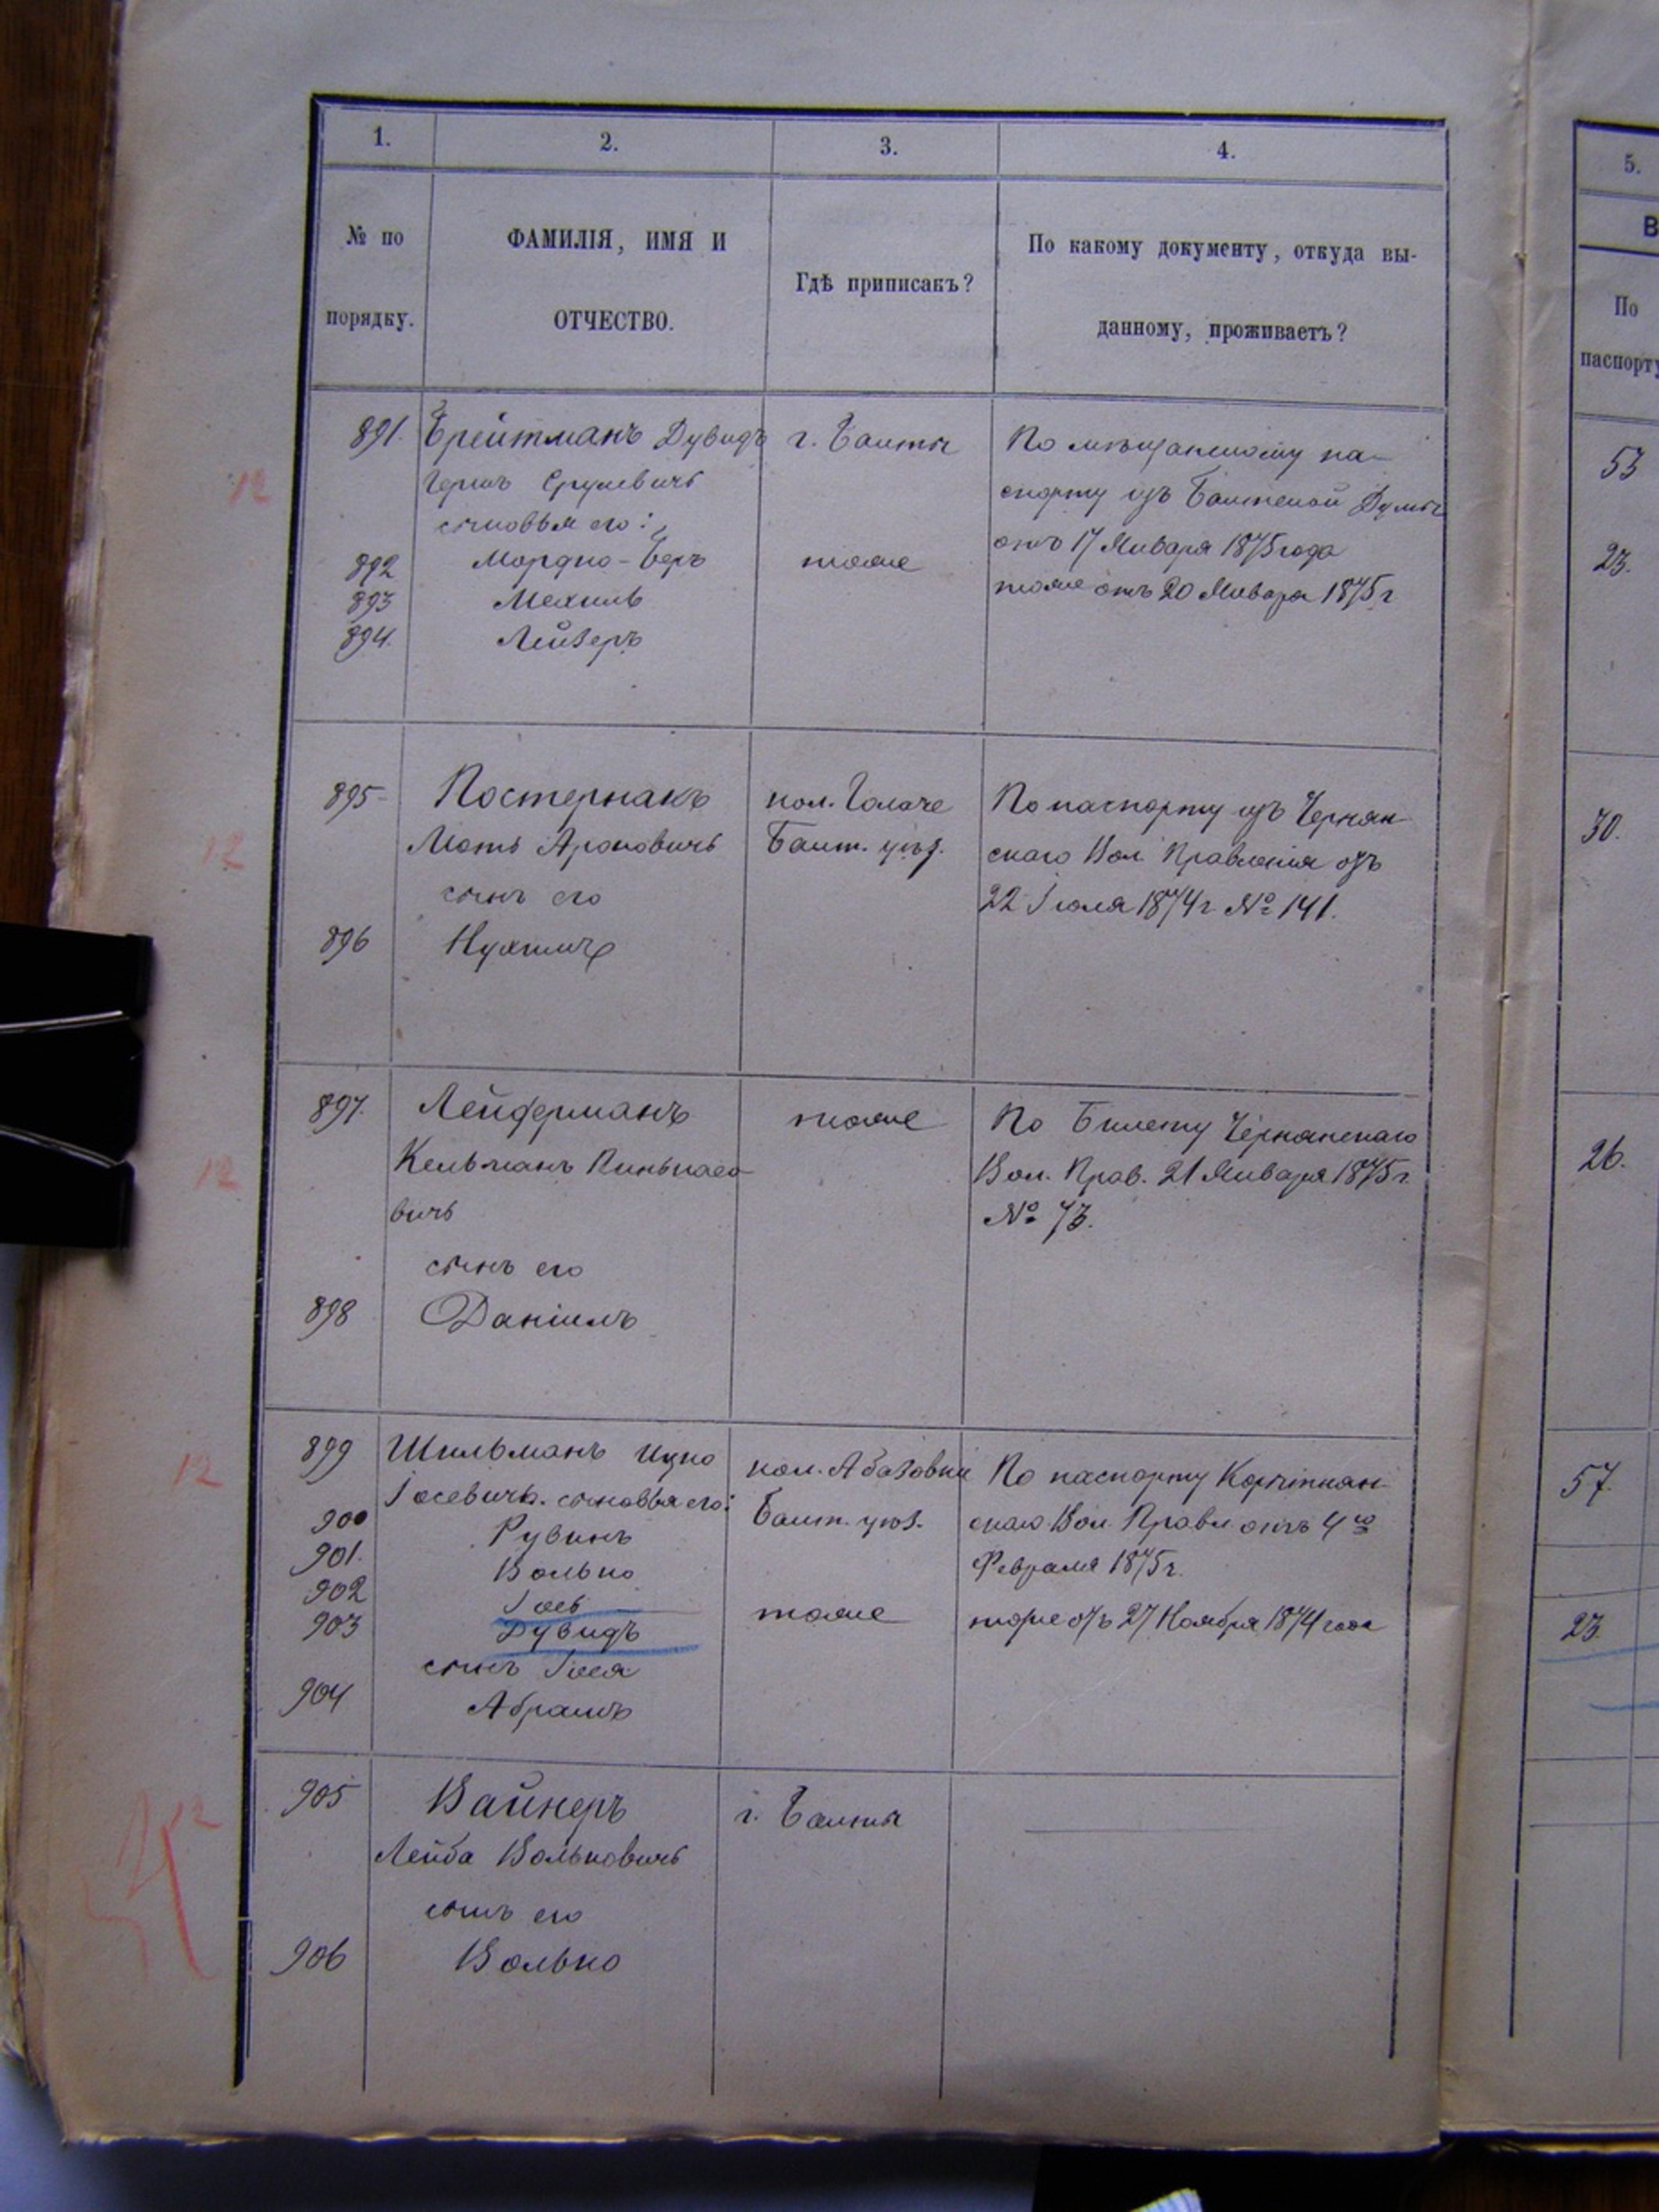 1. 2. 3. 4.
№ по порядку.
ФАМИЛІЯ, ИМЯ И ОТЧЕСТВО.
Гдѣ приписакъ?
По какому документу, откуда вы-
данному, проживаетъ?
891. Брейтманъ Дувидъ г. Балты По мѣщанскому па-
Гершъ Срулевичъ спорту изъ Балтской Думы
сыновья его: отъ 17 Января 1875 года
892 Мордко-Беръ тоже тоже отъ 20 Января 1875 г
893 Мехиль
894. Лейзеръ
895 Постернакъ кол. Голаче По паспорту изъ Чернян-
Моть Ароновичъ Балт. уѣз. скаго Вол. Правленія отъ
сынъ его 22 Іюля 1874 г. № 141.
896 Нухимъ
897. Лейдерманъ тоже По Билету Чернянскаго
Кельманъ Пиньково- Вол. Прав. 21 Января 1875 г.
вичъ № 73.
сынъ его
898 Даніилъ
899 Шильманъ Ицко кол. Абазовки По паспорту
Іосевичъ. сыновья его: Балт. уѣз. скаго Вол. Правл. отъ 4го
900 Рувинъ Февраля 1875 г.
901. Волько
902 Іось
903 Дувидъ тоже тоже отъ 27 Ноября 1874 года
сынъ Іося
904 Абрамъ
905 Вайнеръ г. Балты
Лейба Вольковичъ
сынъ его
906 Волько
12
12
12
12
12
5.
В
По
паспорту
53
23.
30.
26.
57.
23.